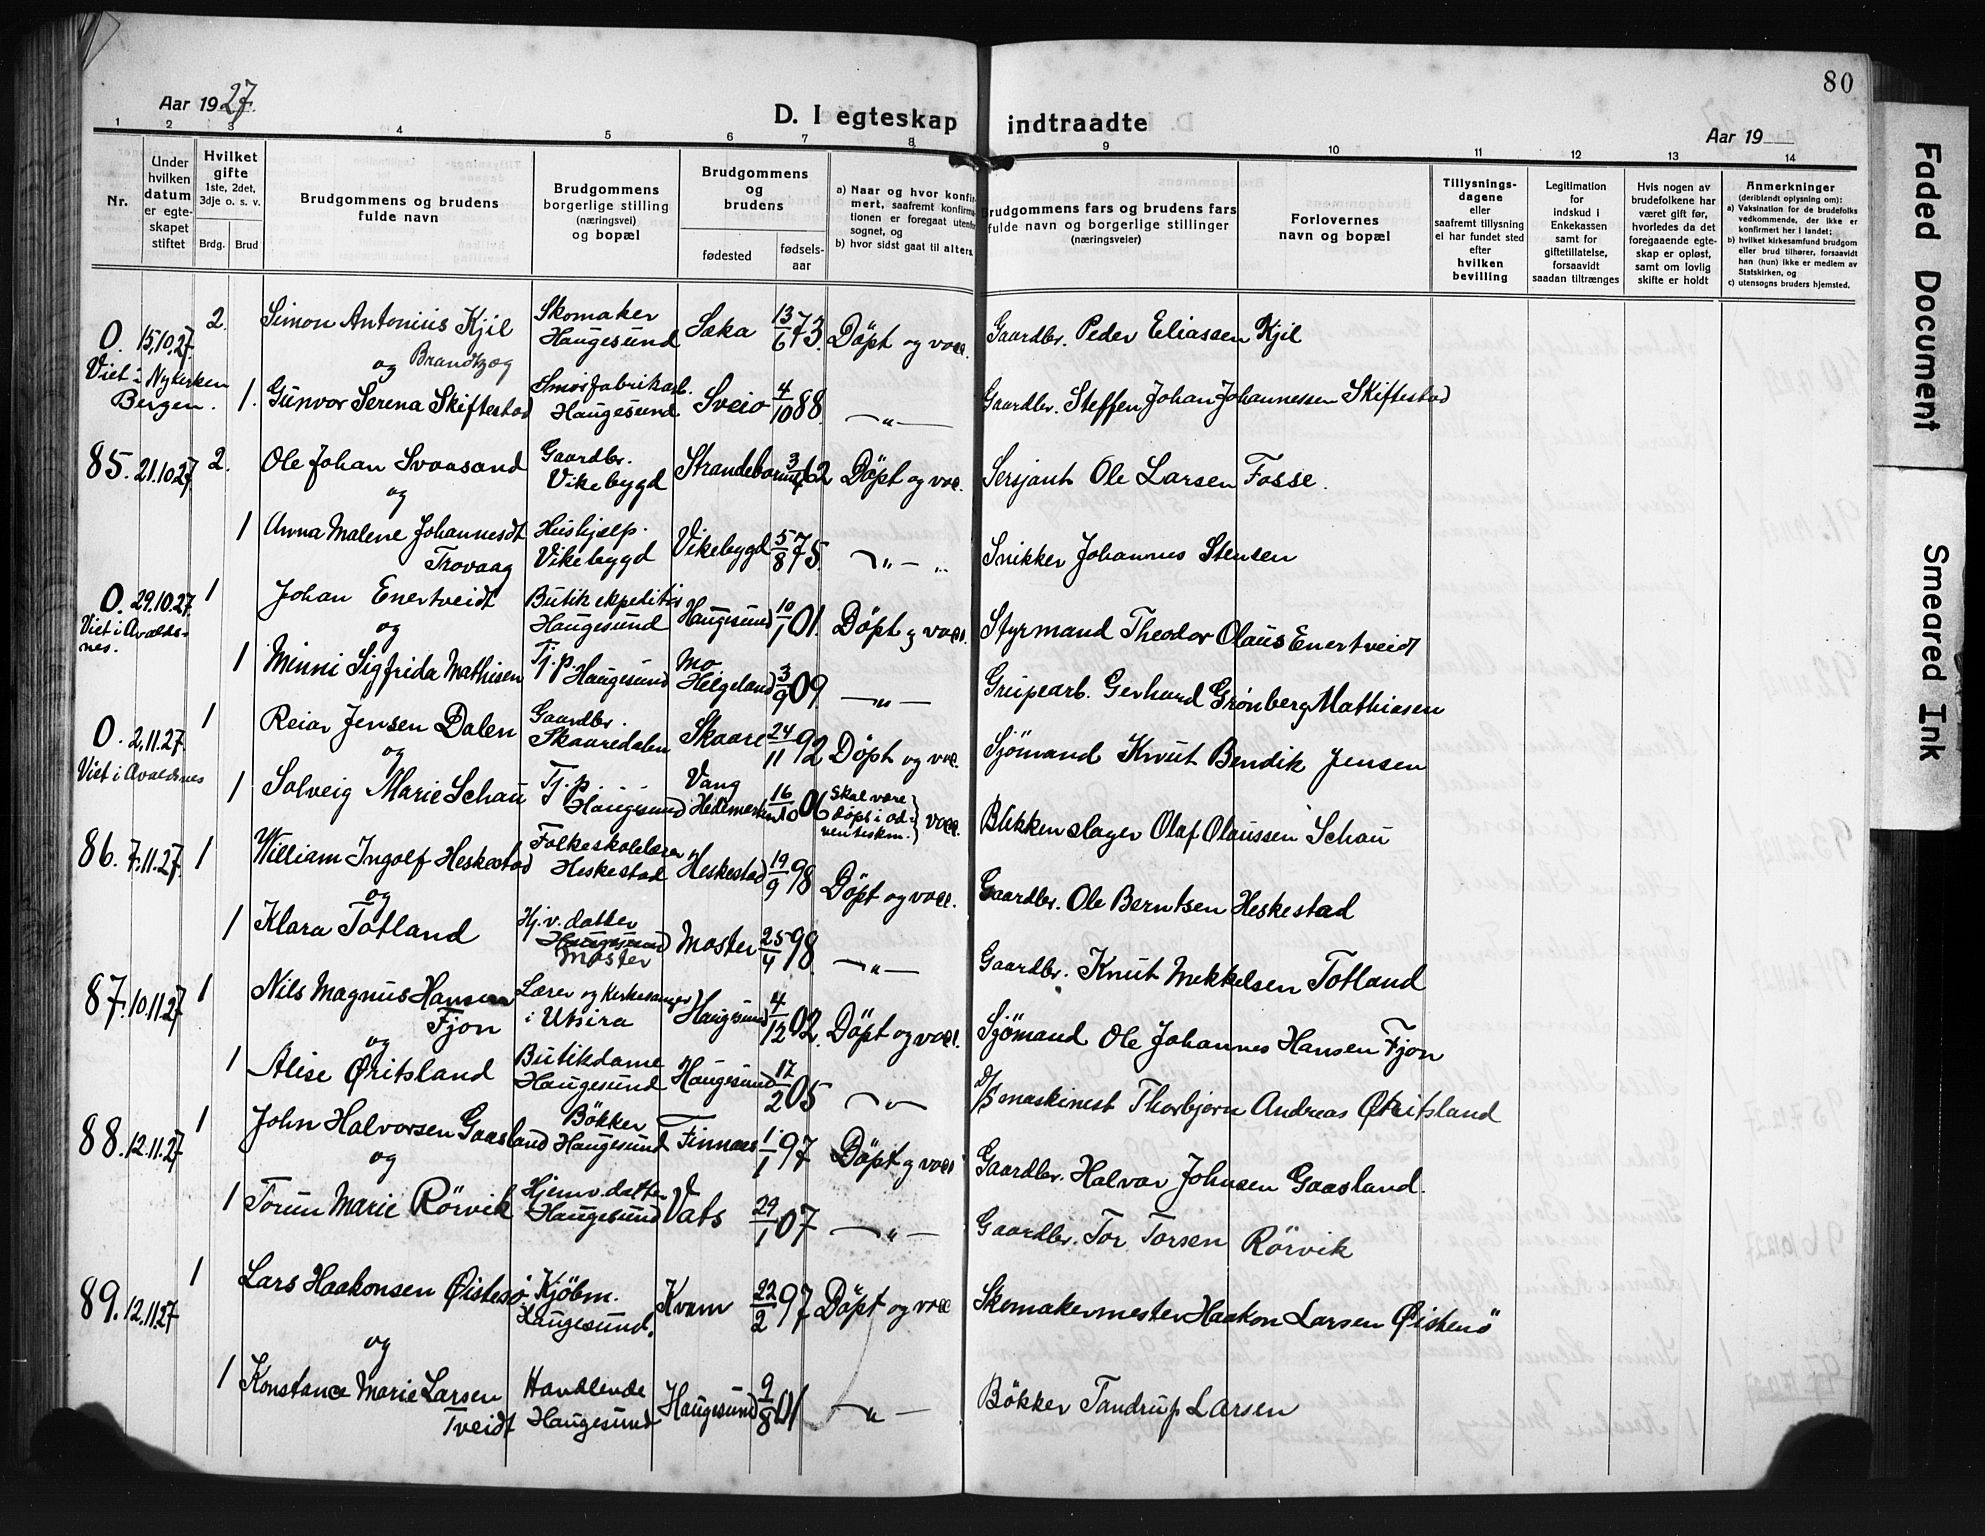 80
Aar 1927.
D. I egteskap indtraadte
Aar 19
1 2 3 4 5 6 7 8 9 10 11 12 13 14
Nr.
Under hvilken datum er egteskapet stiftet
Hvilket gifte 1ste, 2det, 3dje o. s. v.
Brdg. Brud
Brudgommens og brudens fulde navn
Brudgommens borgerlige stilling (næringsvei) og bopæl
Brudgommens og brudens
fødested fødsels-aar
a) Naar og hvor konfirmert, saafremt konfirmationen er foregaat utenfor sognet, og
b) hvor sidst gaat til alters.
Brudgommens fars og brudens fars fulde navn og borgerlige stillinger (næringsveier)
Forlovernes navn og bopæl
Tillysnings-dagene eller saafremt tillysning ei har fundet sted efter hvilken bevilling
Legitimation for indskud i Enkekassen samt for giftetillatelse, forsaavidt saadan tiltrænges
Hvis nogen av brudefolkene har været gift før, hvorledes da det foregaaende egteskap er opløst, samt om lovlig skifte er holdt
Anmerkninger (deriblandt oplysning om):
a) Vaksination for de brudefolks vedkommende, der ikke er konfirmert her i landet;
b) hvilket kirkesamfund brudgom eller brud tilhører, forsaavidt han (hun) ikke er medlem av Statskirken, og
c) utensogns bruders hjemsted.
0. 15.10.27. 2. Simon Antonius Kjil Skomaker Haugesund 13/6 73. Döpt og vacc. Gaardbr. Peder Eliassen Kjil
og Brandtzæg
Viet i Nykirken Bergen. 1. Gunvor Serena Skiftestad Smörfabrikarb. Haugesund Sveio 4/10 88 —"— Gaardbr. Steffen Johan Johannessen Skiftestad
85. 21.10.27 2. Ole Johan Svaasand Gaardbr. Vikebygd Strandebarm 62 Döpt og vac. Sersjant Ole Larsen Fosse.
og
1 Anna Malene Johannesdt Trovaag Hushjælp. Vikebygd Vikebygd 5/8 75. —"— " Snikker Johannes Stensen
0. 29.10.27 1 Johan Enertveidt Butikekpeditör Haugesund Haugesund 10/1 01. Döpt og vacc. Styrmand Theodor Olaus Enertveidt
Viet i Avaldsnes. og
1 Minni Sigfrida Mathisen Tj.p. Haugesund Mo Helgeland 3/9 09 —"— Grupearb. Gerhard Grønberg Mathiasen
0. 2.11.27 1 Reiar Jensen Dalen Gaardbr. Skaaredalen Skaare 24/11 92 Döpt og vac. Sjömand Knut Bendik Jensen
Viet i Avaldsnes og
1 Solveig Marie Schau Tj.p. Haugesund Vang Hedemarken 16/10 06 Skal være döpt i adventiskm. vacc. Blikkenslager Olaf Olaussen Schau
86. 7.11.27 1 William Ingolf Heskestad Folkeskolelærer Heskestad Heskestad 19/9 98 Döpt og vacc. Gaardbr. Ole Berntsen Heskestad
og
1 Klara Totland Hj.v. datter Haugesund Moster Moster 25/4 98 —"— Gaardbr. Knut Mekkelsen Totland
87. 10.11.27 1 Nils Magnus Hansen Fjon Lærer og kirkesanger i Utsira Haugesund 4/12 02. Döpt og vacc. Sjömand Ole Johannes Hansen Fjon
og
1 Alise Øritsland Butikdame Haugesund Haugesund 17/2 05 —"— D/S maskinest Thorbjørn Andreas Øritsland
88. 12.11.27 1 John Halvorsen Gaasland Bökker Haugesund Finnaas 1/1 97 Döpt og vacc Gaardbr. Halvor Johnsen Gaasland.
og
1 Torun Marie Rörvik Hjemv. datter Haugesund Vats 29/1 07 —"— Gaardbr. Tor Torsen Rörvik
89. 12.11.27 1 Lars Haakonsen Øistesö Kjöbm. Haugesund. Kvam 22/2 97 Döpt og vacc Skomakermester Haakon Larsen Øistesö
og
1 Konstance Marie Larsen Tveidt Handlende Haugesund Haugesund 9/8 01 —"— Bökker Tandrup Larsen
Faded Document
Smeared Ink